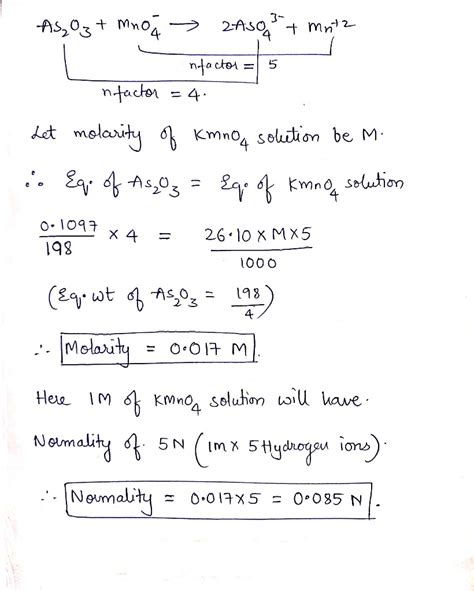 As₂O₃ + MnO₄⁻ → 2ASO₄³⁻ + Mn⁺²
nfactor = 5
nfactor = 4.
Let molarity of KMnO₄ solution be M.
∴ Eq. of As₂O₃ = Eq. of KMnO₄ solution
0.1097/198 × 4 = 26.10 × M × 5/1000
(Eq. wt of As₂O₃ = 198/4)
∴ Molarity = 0.017 M.
Here 1M of KMnO₄ solution will have.
Normality of 5N (1M × 5 Hydrogen ions).
∴ Normality = 0.017×5 = 0.085 N.